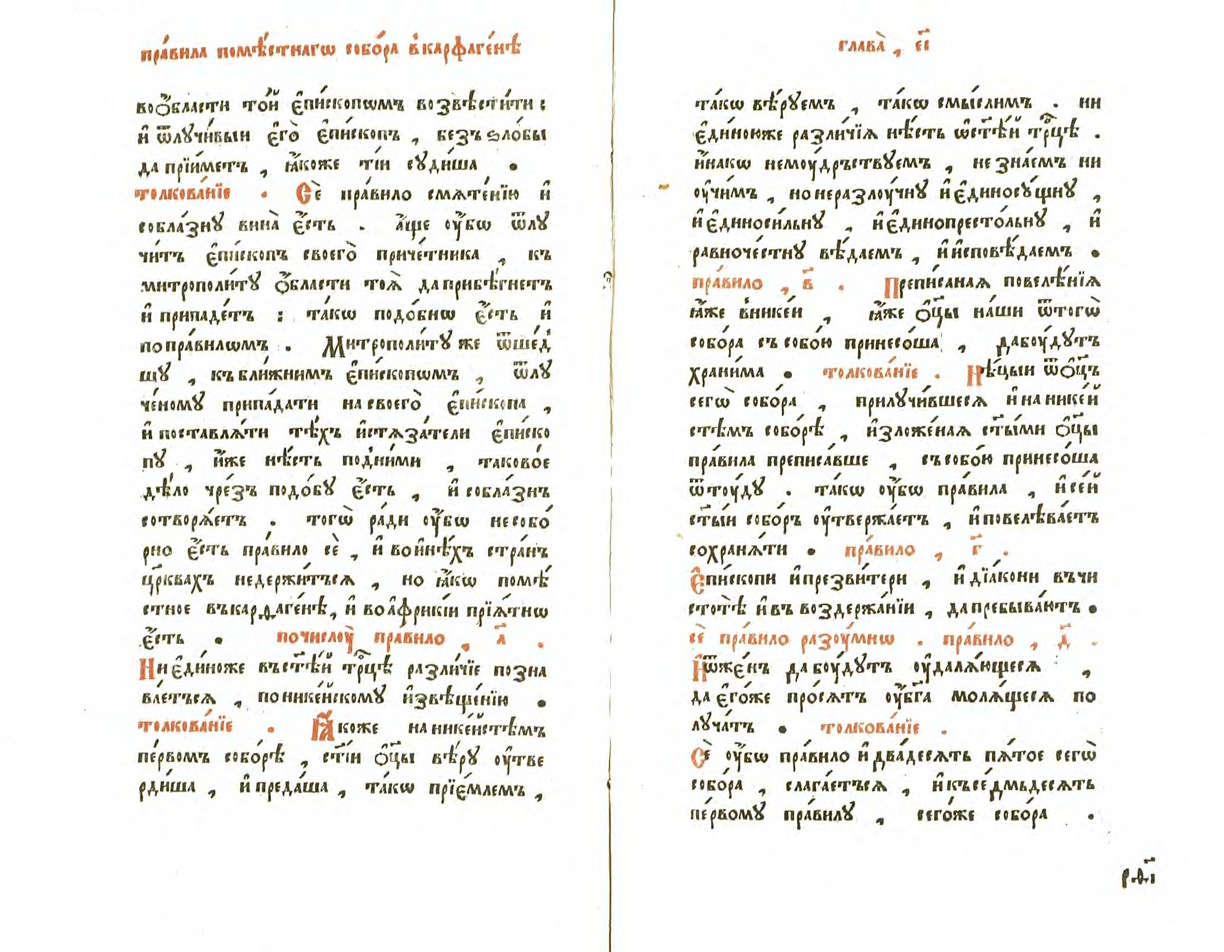 пра́вила помѣ́стнагѡ собо́ра в̾карфаге́нѣ
воѻ҆́бласти то́й є҆пи́скопѡмъ возвѣсти́ти :
и҆ ѿлучи́выи є҆го̀ є҆пи́скопъ , безъ ѕло́бы
да прїи́метъ , ꙗ҆́коже ті́и суди́ша .
толкова́нїе . Сѐ пра́вило смѧте́нїю и҆
собла́знꙋ вина̀ є҆́сть . а҆́ще ᲂу҆́бѡ ѿлꙋ
чи́тъ є҆пи́скопъ своего̀ приче́тника , къ
митрополи́тꙋ ѻ҆́бласти тоѧ̀ да прибѣ́гнетъ
и҆ припаде́тъ : та́кѡ подо́бнѡ є҆́сть и҆
по пра́вилѡмъ . Митрополи́тꙋ же ѿше́д
шꙋ , къ бли́жнимъ є҆пи́скопѡмъ , ѿлꙋ
че́номꙋ припа́дати на своего̀ є҆пи́скопа ,
и҆ поставлѧ́ти тѣ́хъ и҆стѧза́тели є҆пи́ско
пꙋ , и҆́же нѣ́сть под̾ни́ми , таково́е
дѣ́ло чре́зъ подо́бꙋ є҆́сть , и҆ собла́знъ
сотворѧ́етъ . тогѡ̀ ра́ди ᲂу҆́бѡ несобо́
рно є҆́сть пра́вило сѐ , и҆ во и҆нѣ́хъ стра́нъ
цр҃квахъ недержи́тьсѧ , но ꙗ҆́кѡ помѣ́
стное въ карѳаге́нѣ, и҆ во а҆фрикі́и прїѧ́тнѡ
є҆́сть . по числоу̀ пра́вило , а҃ .
Ни є҆ди́ноже въ ст҃ѣ́й трⷪ҇цѣ разли́чїе позна
ва́етьсѧ , по нике́йскомꙋ и҆звѣще́нїю .
толкова́нїе . Ꙗ҆́коже на нике́йстѣмъ
пе́рвомъ собо́рѣ , ст҃і́и ѻ҆ц҃ы вѣ́рꙋ ᲂу҆тве
рди́ша , и҆ преда́ша , та́кѡ прїе́млемъ ,
глава̀ , є҃і
та́кѡ вѣ́рꙋемъ , та́кѡ смы́слимъ . ни
є҆ди́ноюже разли́чїѧ нѣ́сть ѡ҆ ст҃ѣ́й трⷪ҇цѣ .
и҆на́кѡ немоу́дръствꙋемъ , не зна́емъ ни
ᲂу҆чи́мъ , но неразлоу́чнꙋ и҆ є҆диносꙋ́щнꙋ ,
и҆ є҆диноси́льнꙋ , и҆ є҆динопресто́льнꙋ , и҆
равноче́стнꙋ вѣ́даемъ , и҆ и҆сповѣ́даемъ .
пра́вило , в҃ . Препи́санаѧ повелѣ́нїѧ
ꙗ҆́же в̾нике́и , ꙗ҆́же ѻ҆ц҃ы на́ши ѿ тогѡ̀
собо́ра съ собо́ю принесо́ша , да боу́дꙋтъ
храни́ма . толкова́нїе . Нѣ́цыи ѿ ѻ҆ц҃ъ
сегѡ̀ собо́ра , прилꙋчи́вшеесѧ и҆ на нике́й
стѣмъ собо́рѣ , и҆зложе́наѧ ст҃ы́ми ѻ҆ц҃ы
пра́вила преписа́вше , съ собо́ю принесо́ша
ѿтоу́дꙋ . та́кѡ ᲂу҆́бѡ пра́вила , и҆ се́й
ст҃ы́и собо́ръ ᲂу҆твержа́етъ , и҆ повелѣва́етъ
сохранѧ́ти . пра́вило , г҃ .
Є҆пи́скопи и҆ презви́тери , и҆ дїа́кони въ чи
стотѣ̀ и҆ въ воздержа́нїи , да пребыва́ютъ .
сѐ пра́вило разоу́мнѡ . пра́вило , д҃ .
Ѿ же́нъ да боу́дꙋтъ ᲂу҆далѧ́ющесѧ ,
да є҆го́же про́сѧтъ ᲂу҆ бг҃а молѧ́щесѧ по
лꙋча́тъ . толкова́нїе .
Сѐ ᲂу҆́бѡ пра́вило и҆ два́десѧть пѧ́тое сегѡ̀
собо́ра , слага́етьсѧ , и҆ къ се́дмьдесѧть
пе́рвомꙋ пра́вилꙋ , сего́же собо́ра .
р҃ѳі